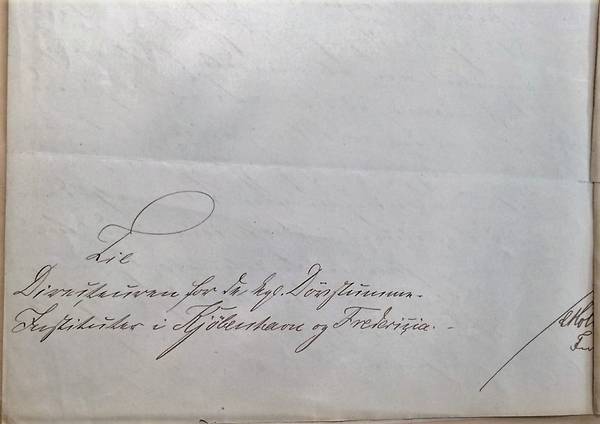 Til
Directeuren for de kgl. Døvstumme-
Instituter i Kjöbenhavn og Fredericia. -